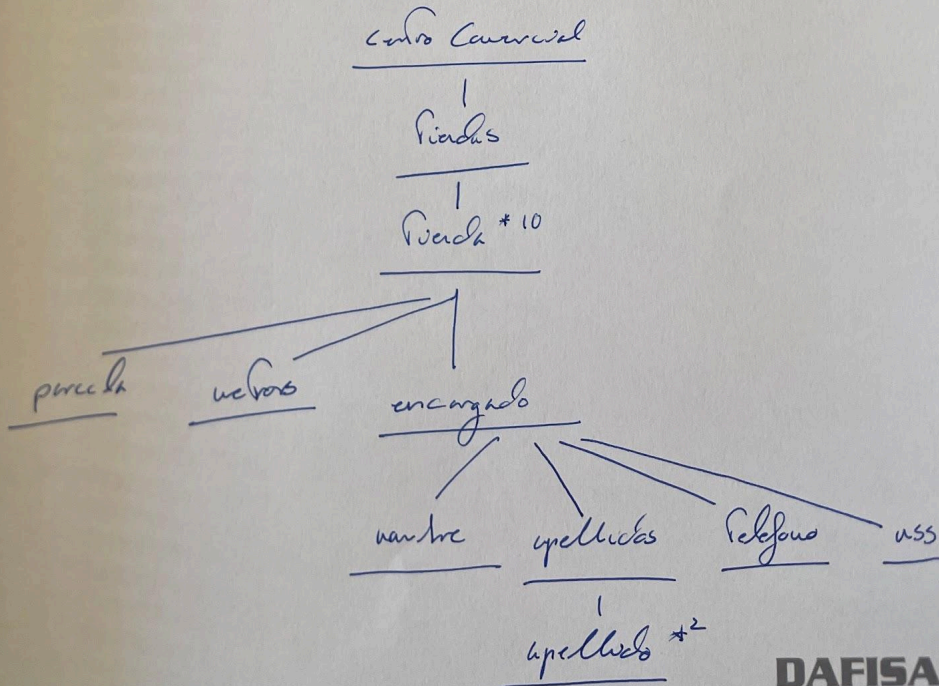 centro Comercial
Tiendas
Tienda * 10
parcela metros encargado
nombre apellidos Telefono nss
apellido *2
DAFISA